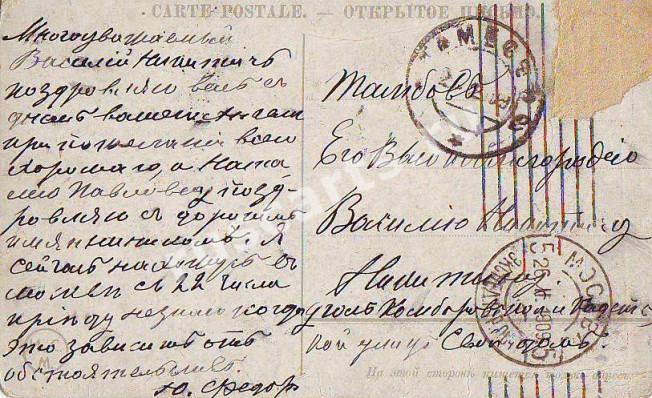 CARTE POSTALE. — ОТКРЫТОЕ ПИСЬМО.
Многоуважаемый
Василій Никитичъ
поздравляю васъ съ
днемъ вашего Ангела
при пожеланіи всего
хорошаго, а Ната
лію Павловну позд-
ровляю съ дорогимъ
имянинникомъ. Я
сейчасъ нахожусь въ
съ 22 числа
пріѣду незнаю когда
это зависитъ отъ
обстоятельствъ.
Ю. Федор
Тамбовъ
Его Высокоблагородію
Василію Никитичу
Никитину
уголъ и
кой улицъ Свой домъ.
МОСКВА
На этой сторонѣ пишется только адресъ.